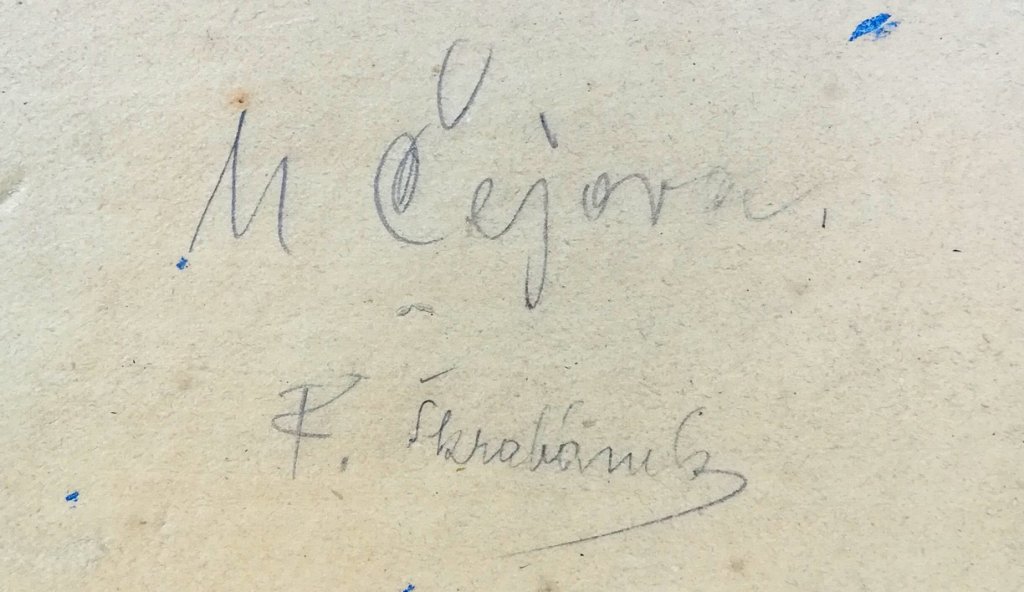 M Čejova
a
F. Škrabánek